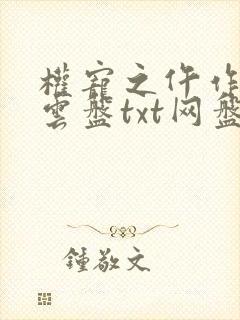 權寵之仵作
雲盤txt网盘
鍾敬文